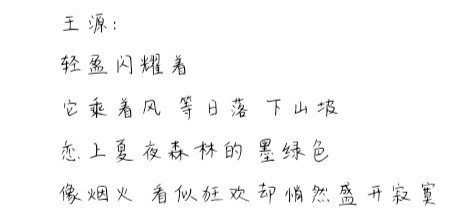 王源:
轻盈闪耀着
它乘着风 等日落 下山坡
恋上夏夜森林的 墨绿色
像烟火 看似狂欢却悄然盛开寂寞